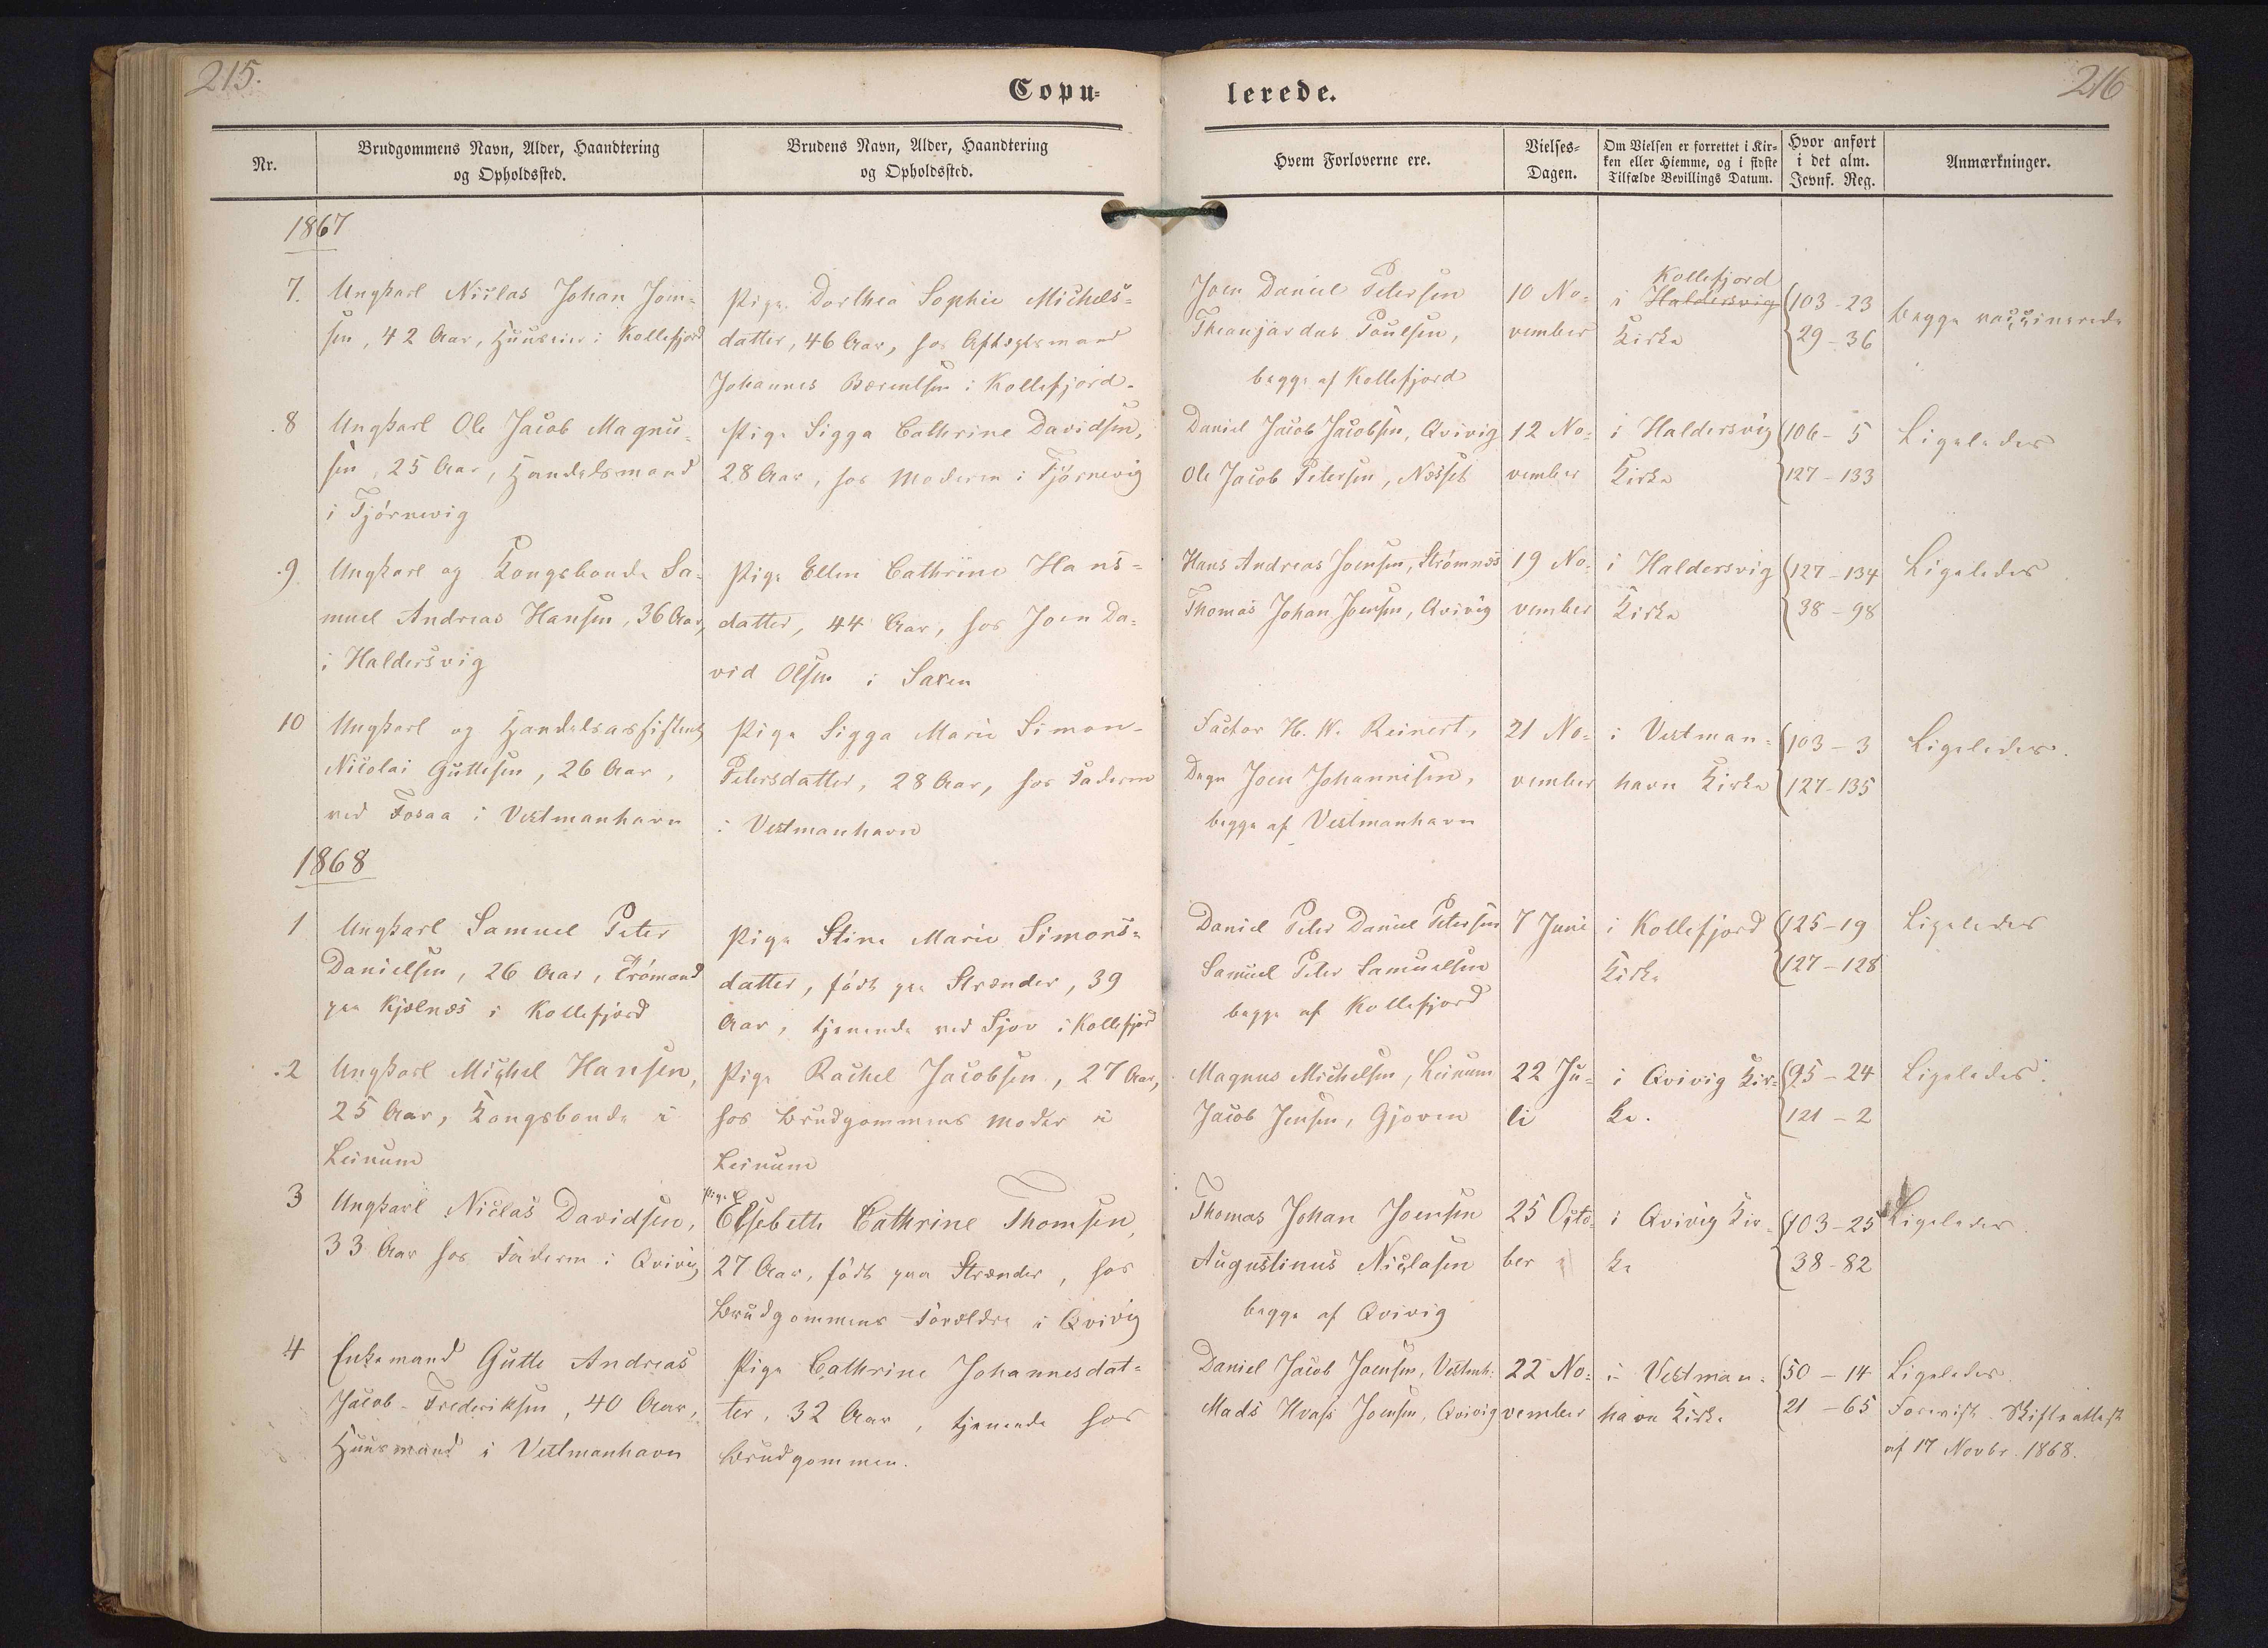 215.
Copu-
lerede.
216
Nr.
Brudgommens Navn, Alder, Haandtering
og Opholdssted.
Brudens Navn, Alder, Haandtering
og Opholdssted.
Hvem Forloverne ere.
Vielses-
Dagen.
Om Vielsen er forrettet i Kir-
ken eller Hjemme, og i sidste
Tilfælde Bevillings Datum.
Hvor anført
i det alm.
Jevnf. Reg.
Anmærkninger.
1867
7.
Ungkarl Niclas Johan Joen-
sen, 42 Aar, Huuseier i Kollefjord
Pige Dorthea Sophie Michels-
datter, 46 Aar, hos Aftægtsmand
Johannes Bærentsen i Kollefjord.
Joen Daniel Petersen
Poulsen,
begge af Kollefjord
10 No-
vember
Kollefjord
i Haldersvig
Kirke
103-23
29-36
begge vaccinerede
8
Ungkarl Ole Jacob Magnu-
sen, 25 Aar, Handelsmand
i Tjörnevig
Pige Sigga Cathrine Davidsen,
28 Aar, hos Moderen i Tjörnevig
Daniel Jacob Jacobsen, Qvivig
Ole Jacob Petersen, Næsset
12 No-
vember
i Haldersvig
Kirke
106-5
127-133
Ligeledes
9
Ungkarl og Kongsbonde Sa-
muel Andreas Hansen, 36 Aar,
i Haldersvig
Pige Ellen Cathrine Hans-
datter, 44 Aar, hos Joen Da-
vid Olsen i Saxen
Hans Andreas Joensen, Strömnæs
Thomas Johan Joensen, Qvivig
19 No-
vember
i Haldersvig
Kirke
127-134
38-98
Ligeledes
10
Ungkarl og Handelsassistent
Nicolai Guttesen, 26 Aar,
ved Fosaa i Vestmanhavn
Pige Sigga Marie Simon-
Petersdatter, 28 Aar, hos Faderen
i Vestmanhavn
Factor H. W. Reinert,
Joen Johannesen,
begge af Vestmanhavn
21 No-
vember
i Vestman-
havn Kirke
103-3
127-135
Ligeledes.
1868
1
Ungkarl Samuel Peter
Danielsen, 26 Aar,
paa Kjælnæs i Kollefjord
Pige Stine Marie Simons-
datter, født paa Strænder, 39
Aar, tjenende ved Sjov i Kollefjord
Daniel Peter Daniel Petersen
Samuel Peter Samuelsen
begge af Kollefjord
7 Juni
i Kollefjord
Kirke
125-19
127-128
Ligeledes
2
Ungkarl Michel Hansen,
25 Aar, Kongsbonde i
Leinum
Pige Rachel Jacobsen, 27 Aar,
hos Brudgommens Moder i
Leinum
Magnus Michelsen, Leinum
Jacob Jensen, Gjoven
22 Ju-
li
i Qvivig Kir-
ke.
95-24
121-2
Ligeledes.
3
Ungkarl Niclas Davidsen,
33 Aar hos Faderen i Qvivig
Pige
Elsebeth Cathrine Thomsen,
27 Aar, født paa Strænder, hos
Brudgommens Forældre i Qvivig
Thomas Johan Joensen
Augustinus Niclasen
begge af Qvivig
25 Octo-
ber
i Qvivig Kir-
ke
103-25
38-82
Ligeledes
4
Enkemand Gutte Andreas
Jacob-Frederiksen, 40 Aar,
Huusmand i Vestmanhavn
Pige Cathrine Johannesdat-
ter, 32 Aar, tjenende hos
Brudgommen.
Daniel Jacob Joensen, Vestmh:
Mads Hvass Joensen, Qvivig
22 No-
vember
i Vestman-
havn Kirke
50-14
21-65
Ligeledes.
Forevist Skifteattest
af 17 Novbr. 1868.